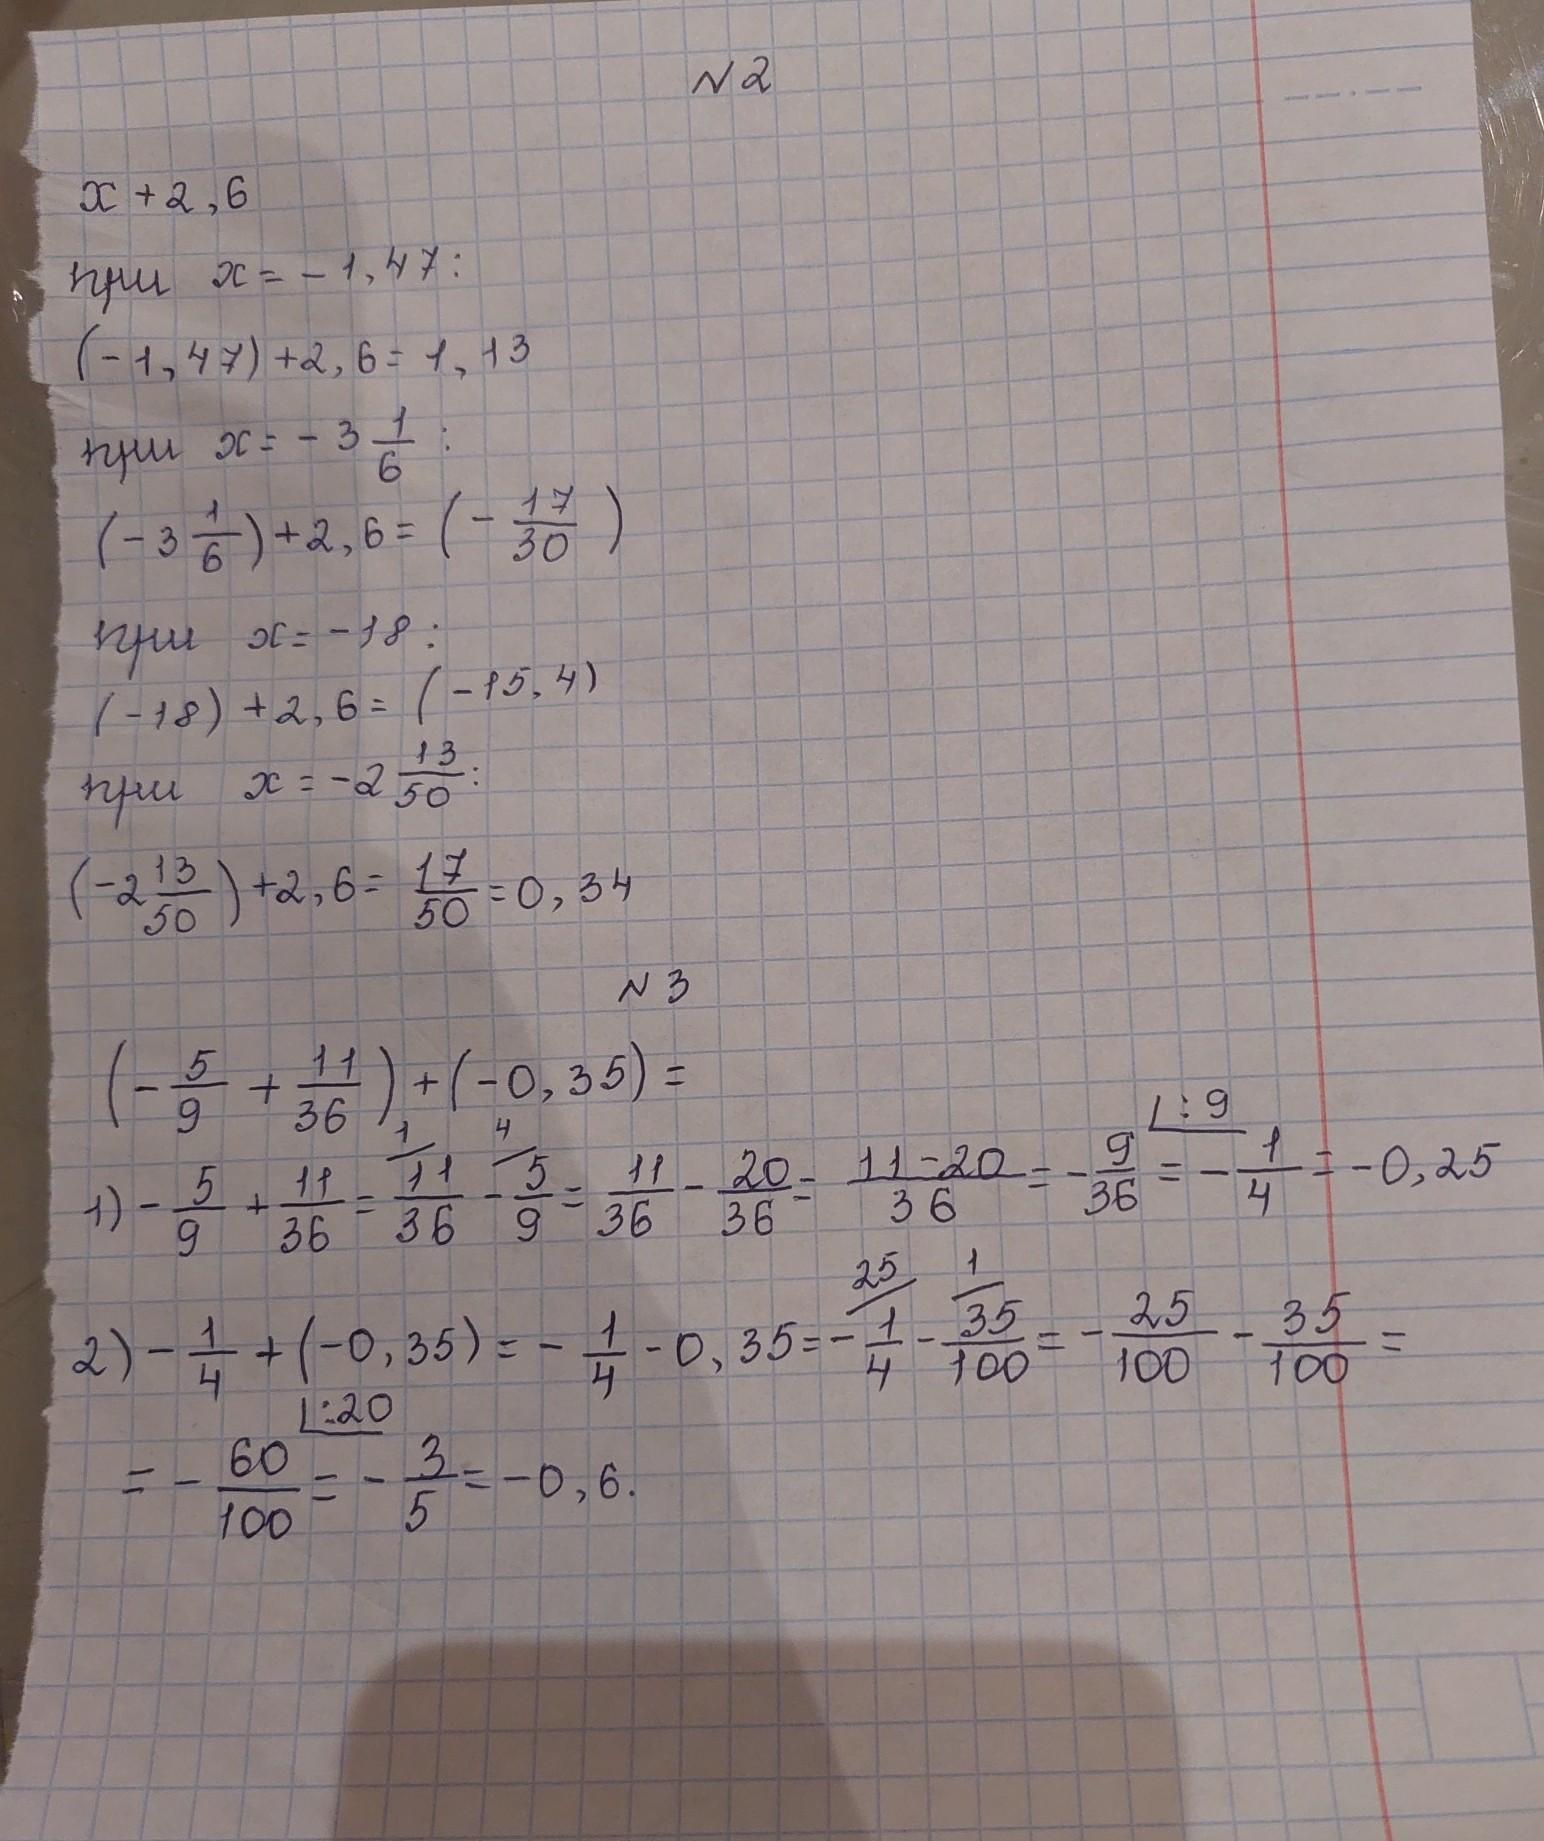 №2
x + 2,6
при x = -1,47:
(-1,47) + 2,6 = 1,13
при x = -3 1/6 :
(-3 1/6) + 2,6 = (-17/30)
при x = -18 :
(-18) + 2,6 = (-15,4)
при x = -2 13/50 :
(-2 13/50) + 2,6 = 17/50 = 0,34
№3
(-5/9 + 11/36) + (-0,35) =
1 4 L:9
1) -5/9 + 11/36 = 11/36 - 5/9 = 11/36 - 20/36 = 11-20/36 = -9/36 = -1/4 = -0,25
25 1
2) -1/4 + (-0,35) = -1/4 - 0,35 = -1/4 - 35/100 = -25/100 - 35/100 =
L:20
= -60/100 = -3/5 = -0,6.